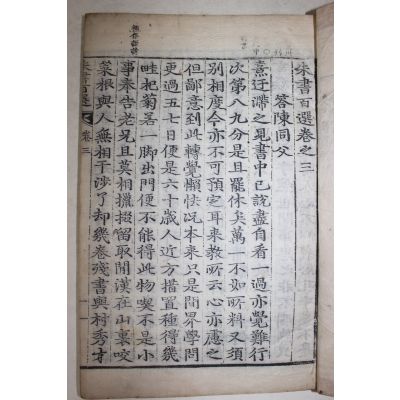 朱書百選卷之三
答陳同父
熹迂滯之見書中已說盡自看一過亦覺難行
次第八九分是且罷休矣萬一不如所料又須
別相度今亦不可預定耳來教所云心亦慮之
但鄙意到此轉覺懶怯況本來只是間界學問
更過五七日便是六十歲人近方措置種得幾
畦杞菊若一脚出門便不能得此物喫不是小
事奉告老兄且莫相攛掇留取閒漢在山裏咬
菜根與人無相干涉了却幾卷殘書與村秀才
朱書百選
卷三